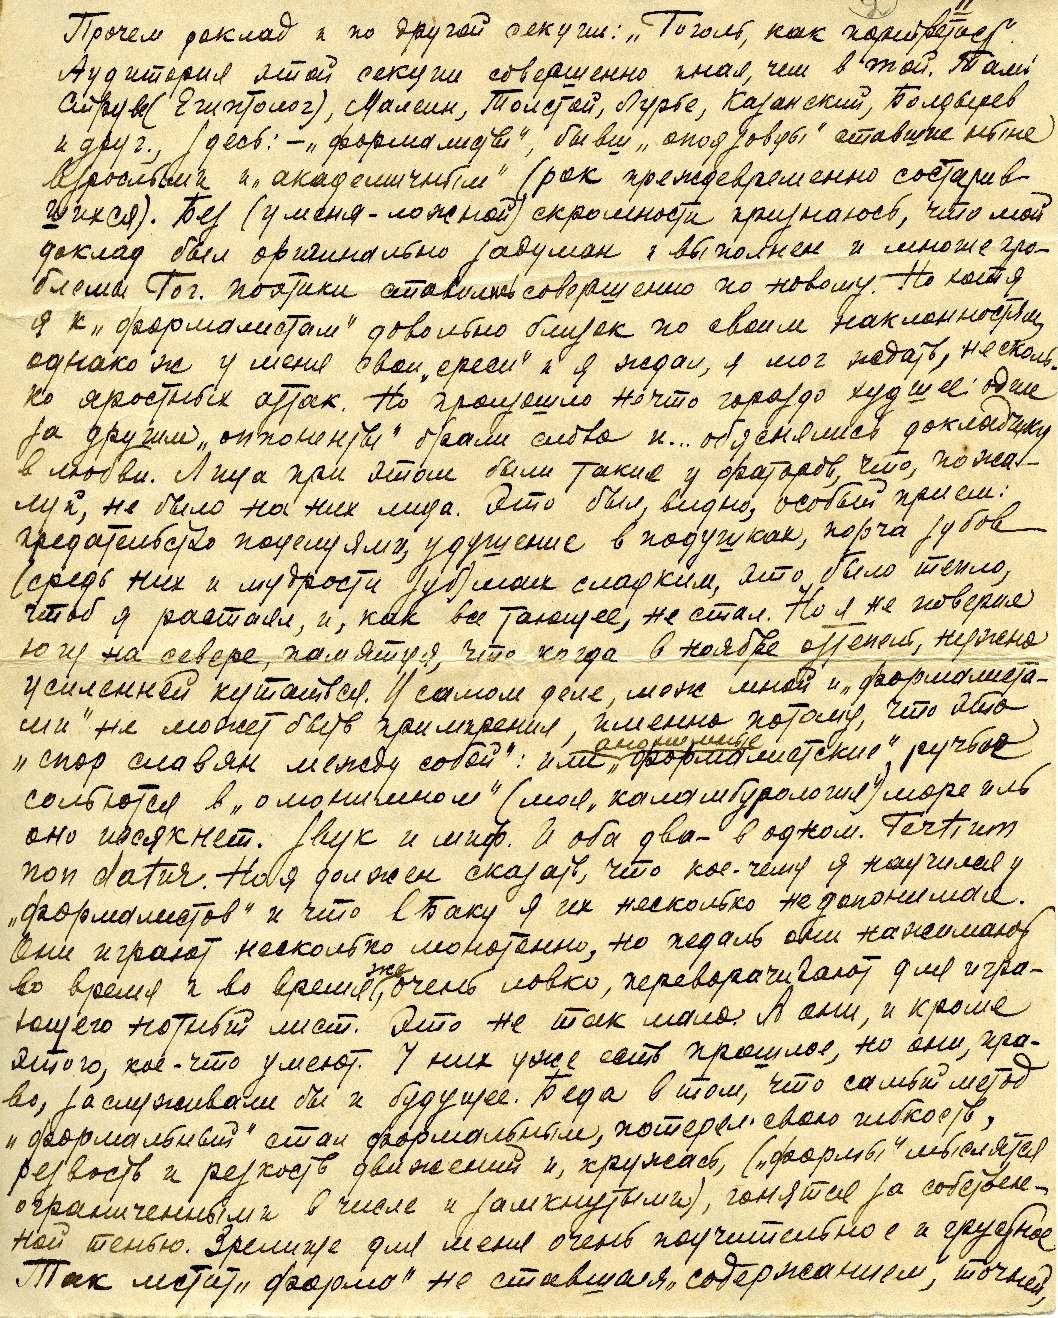 Прочем доклад и по другой секции: „Гоголь, как портретист“.
Аудитория этой секции совершенно иная, чем в той. Там:
Струве (Египтолог), Малеин, Толстой, Лурье, Казанский, Болдырев
и друг., здесь: — „формалисты“, бывш „опоязовцы“ ставшие ныне
взрослыми и „академичными“ (рок преждевременно состарив-
шихся). Без (у меня - ложной) скромности признаюсь, что мой
доклад был оригинально задуман и выполнен и многие про-
блемы Гог. поэтики ставились совершенно по новому. Но хотя
я к „формалистам“ довольно близок по своим наклонностям,
однако ж у меня свои „ереси“ и я ждал, я мог ждать, несколь-
ко яростных атак. Но произошло нечто гораздо худшее: одни
за другим „оппоненты“ брали слово и... объяснялись докладчику
в любви. Лица при этом были такие у ораторов, что, пожа-
луй, не было на них лица. Это был, видно, особый прием:
предательство поцелуями, удушение в подушках, порча зубов
(средь них и мудрости зуб) мак сладким, это было тепло,
чтоб я растаял, и, как все тающее, не стал. Но я не поверил
югу на севере, памятуя, что когда в ноябре оттепель, нужно
усиленней кутаться. И самом деле, меж мной и „формалиста-
ми“ не может быть примирения, именно потому, что это
„спор славян между собой“: или „формалистские“ ручьи
сольются в „омонимном“ (моя „каламбурология“) море иль
оно иссякнет. Звук и миф. И оба два - в одном. Tertium
non datur. Но я должен сказать, что кое-чему я научился у
„формалистов“ и что в Баку я их несколько недопонимал.
Они играют несколько монотонно, но педаль они нажимают
во время и во время же, очень ловко, переворачивают для игра-
ющего нотный лист. Это не так мало. А они, и кроме
этого, кое-что умеют. У них уже есть прошлое, но они, пра-
во, заслуживали бы и будущее. Беда в том, что самый метод
„формальный“ стал формальным, потерял свою гибкость,
резвость и резкость движений и, кружась, („формы“ мыслятся
ограниченными в числе и замкнутыми), гонятся за собствен-
ной тенью. Зрелище для меня очень поучительное и грустное
Так мстит „форма“ не ставшая „содержанием“, точней,